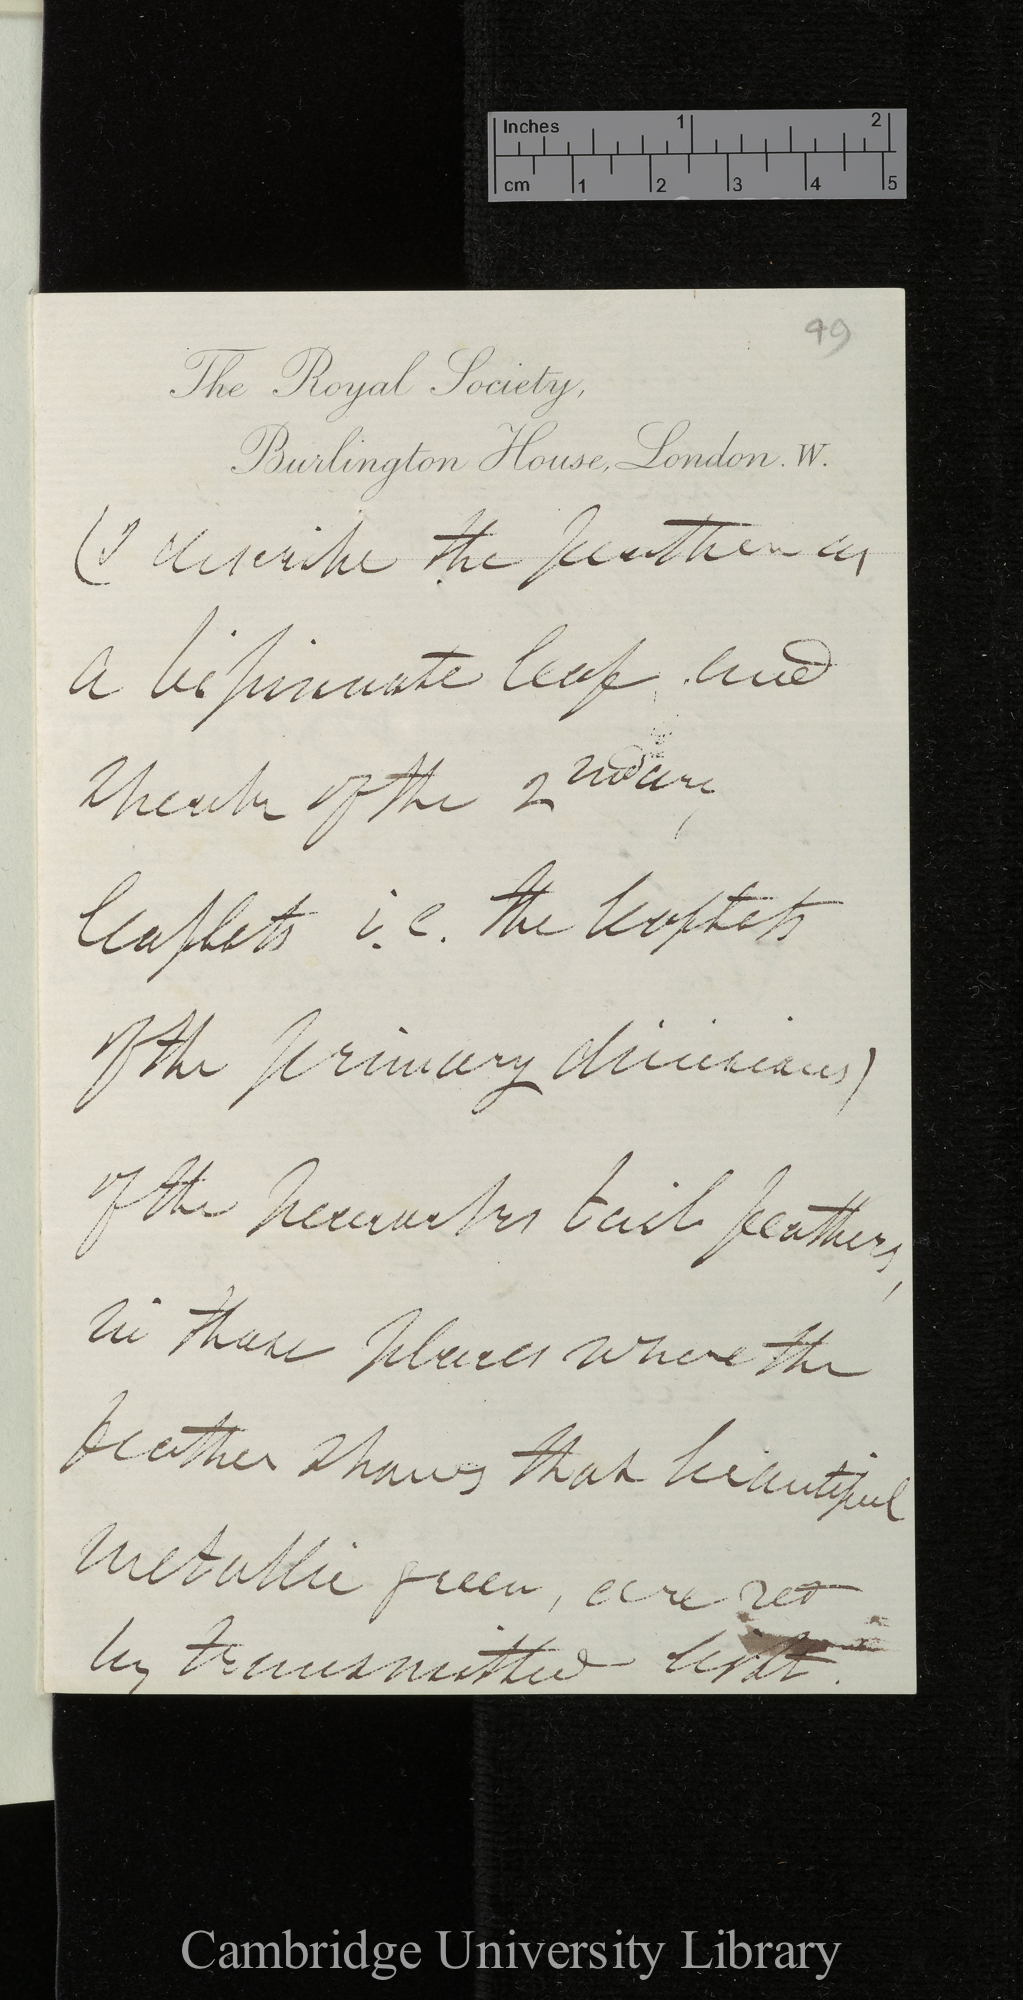 Inches 1 2
cm 1 2 3 4 5
49
The Royal Society,
Burlington House, London. W.
(I describe the feather as
a bipinnate leaf and
speak of the 2ndary
leaflets i.e. the leaflets
of the primary divisions)
of the peacocks tail feathers,
in those places where the
feather shows that beautiful
metallic green, are red
by transmitted light.
Cambridge University Library